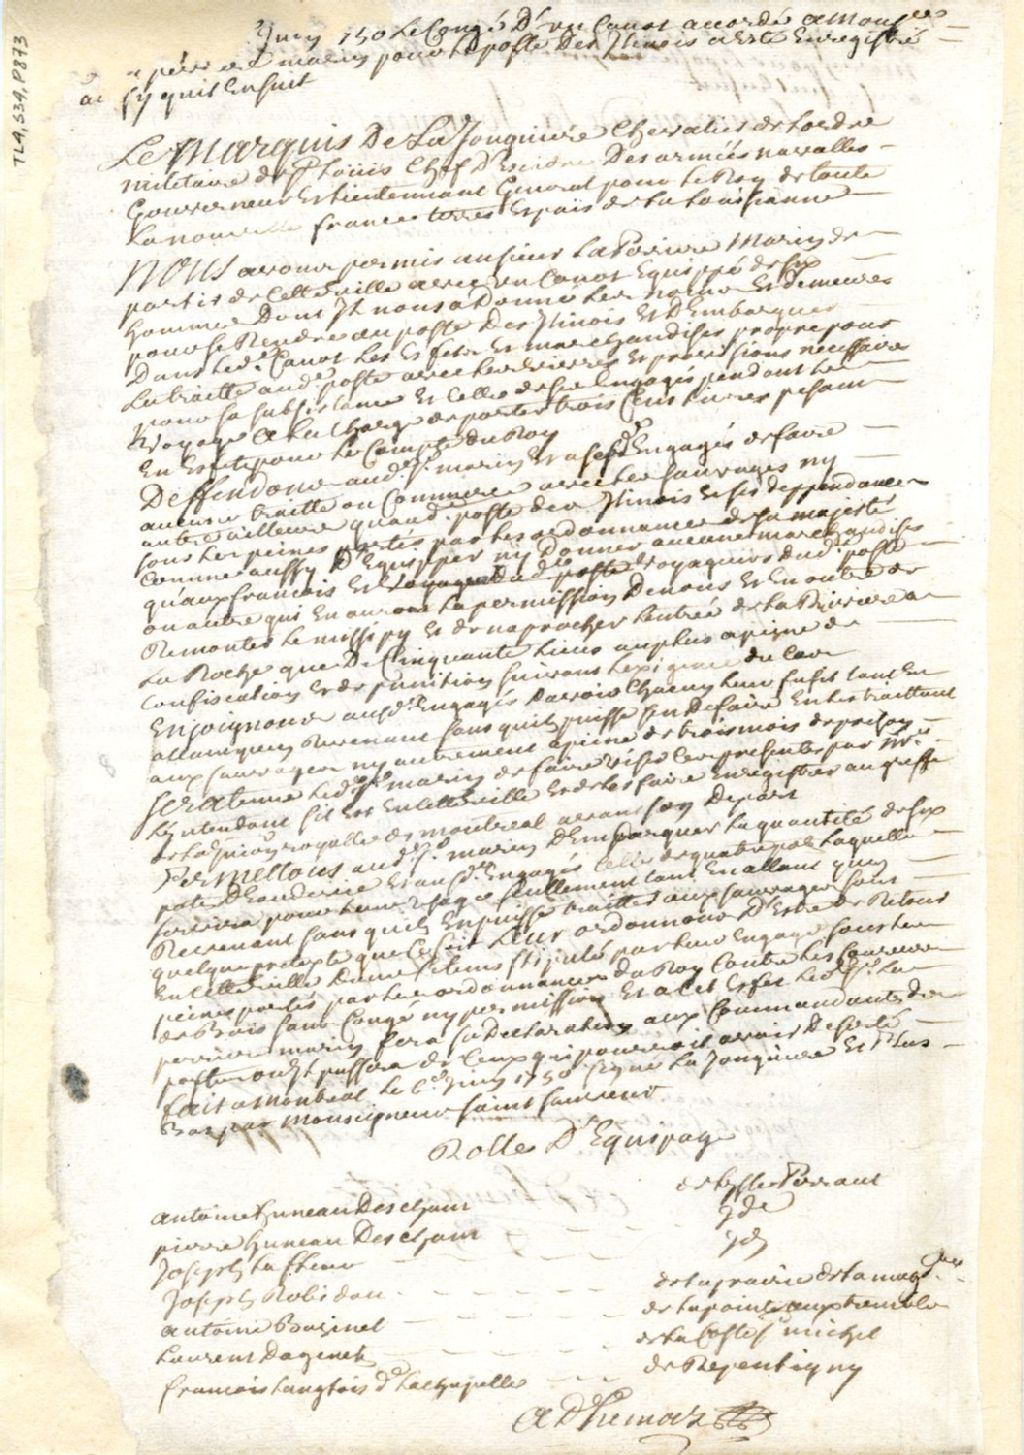 TL4,S34,P873
Juin 1750 Le Congé D'un Canot accordé a Mons
marin pour Le poste Des Ilinois a Esté Enregistré
ainsy quil Ensuit
Le Marquis De La Jonquiere Chevalier de Lordre
militaire de St Louis Chef D'Escadre Des armées navalles
Gouverneur Et Lieutennant General pour Le Roy de toute
La nouvelle france terres Et païs de La Loüisianne
NOUS avons permis au sieur La Perriere Marin de
partir de Cette ville avec Un Canot Equippé de six
hommes Dont Il nous a Donné Les noms Et Demeures
pour se Rendre au poste Des Ilinois Et D'Embarquer
Dans Led. Canot Les Effets Et marchandises propre pour
La traitte aud. poste avec Les vivres Et provisions necessaire
pour sa subsistance Et Celle de ses Engagés pendant Le
voyage a La Charge de porter trois Cent Livres pesant
En Effets pour Le Compte du Roy
Deffendons aud. Sr. marin Et a sesd. Engagés de faire
aucune traitte ou Commerce avec Les sauvages ny
autre ailleurs quaud. poste des Ilinois Et ses deppendances
sous Les peines portés par Les ordonnances de sa majesté
Comme aussy D'Equipper ny Donner aucune marchandises
qu'aux francois Et Voyageurs dud. poste
ou autre qui En auront La permission De nous Et En outre de
Remonter Le missipy Et de naprocher Lentrée de La Riviere a
La Roche que De Cinquante Lieues au plus a peine de
Confiscation Et de punition suivant Lexigence du Cas
Enjoignons ausd. Engagés Davoir Chacun Leur fusil tant En
allant quen Revenant sans quils puisse sen Defaire En Les traittant
aux sauvages ny autrement a peine de trois mois de prison
Sera tenu Led. Sr. marin de faire viser Les presentes par Mr.
Lyntendant sil Est En Cette ville Et de Les faire Enregistrer au greffe
de La Jurion royalle de montreal avant son Depart
Permettons aud. Sr. marin D'Embarquer La quantité de six
pots D'Eaudevie Et ausd. Engagés Celle de quatre pots Laquelle
servira pour Leur usage seullement tant En allant quen
Revenant sans quils En puisse traitter aux sauvages sous
quelque pretexte que Ce soit Leur ordonnons D'Estre de Retour
En Cette ville Dans Le tems stipulé par Leur Engagé sous Les
peines portés par Les ordonnances du Roy Contre Les Coureurs
de Bois sans Congé ny permission Et a Cet Effet Led. Sr. La
perriere marin fera sa Declaration aux Commandants des
postes ou Il passera de Ceux qui pourroit avoir Deserté
fait a Montreal Le 6e Juin 1750 signé La Jonquiere Et Plus
Bas par Monseigneur Saint Sauveur
Rolles D'Equipage
antoine huneau Deschams de Lisle Perraut
pierre huneau Deschams Jde
Joseph La fleur Jd
Joseph Robidou de La prairie de La magdne
antoine Bazinet de La pointe aux trembles
Laurent Dagenets de La Coste St. michel
francois Langlois de. Lachapelle de Repentigny
ADhemar